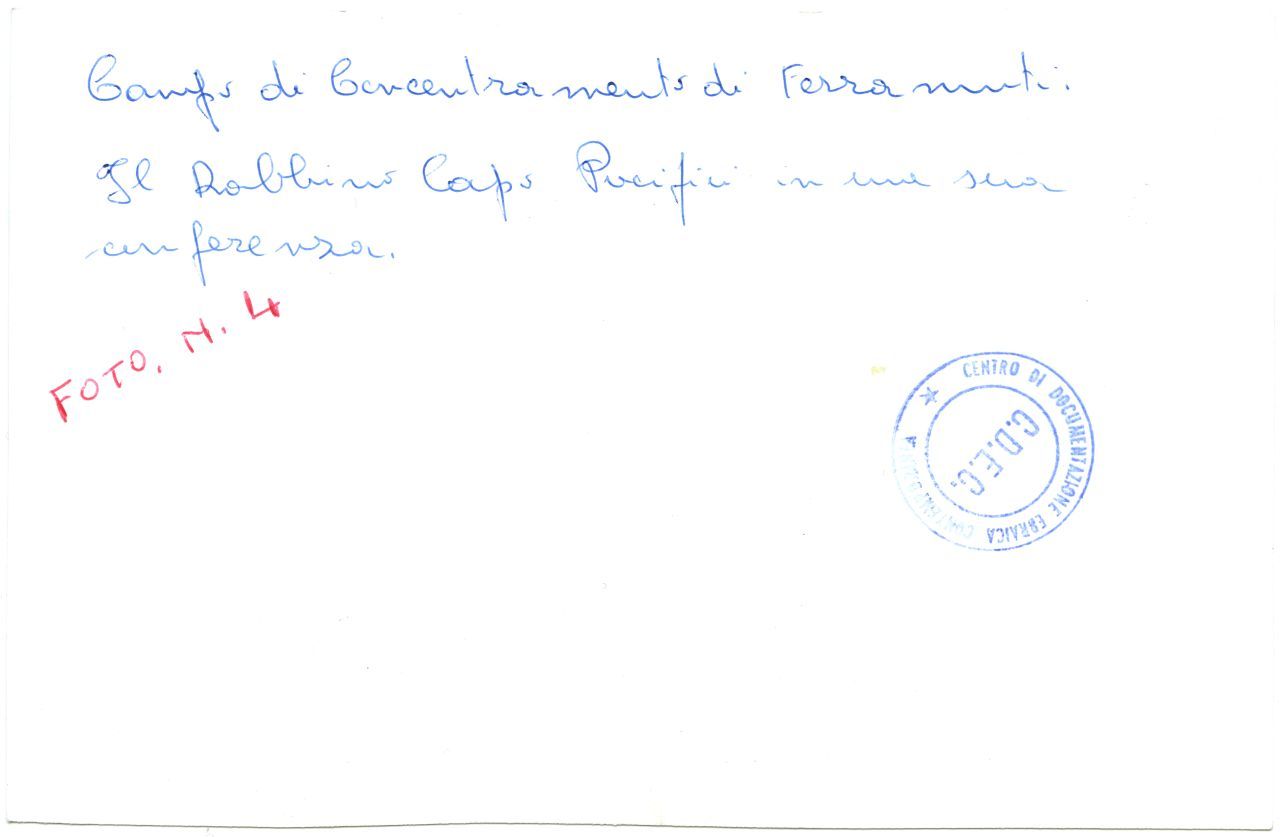 Campo di Concentramento di Ferramonti.
Il Rabbino Capo Pacifici in una sua
conferenza.
FOTO. N. 4
CENTRO DI DOCUMENTAZIONE EBRAICA CONTEMPORANEA
C.D.E.C.